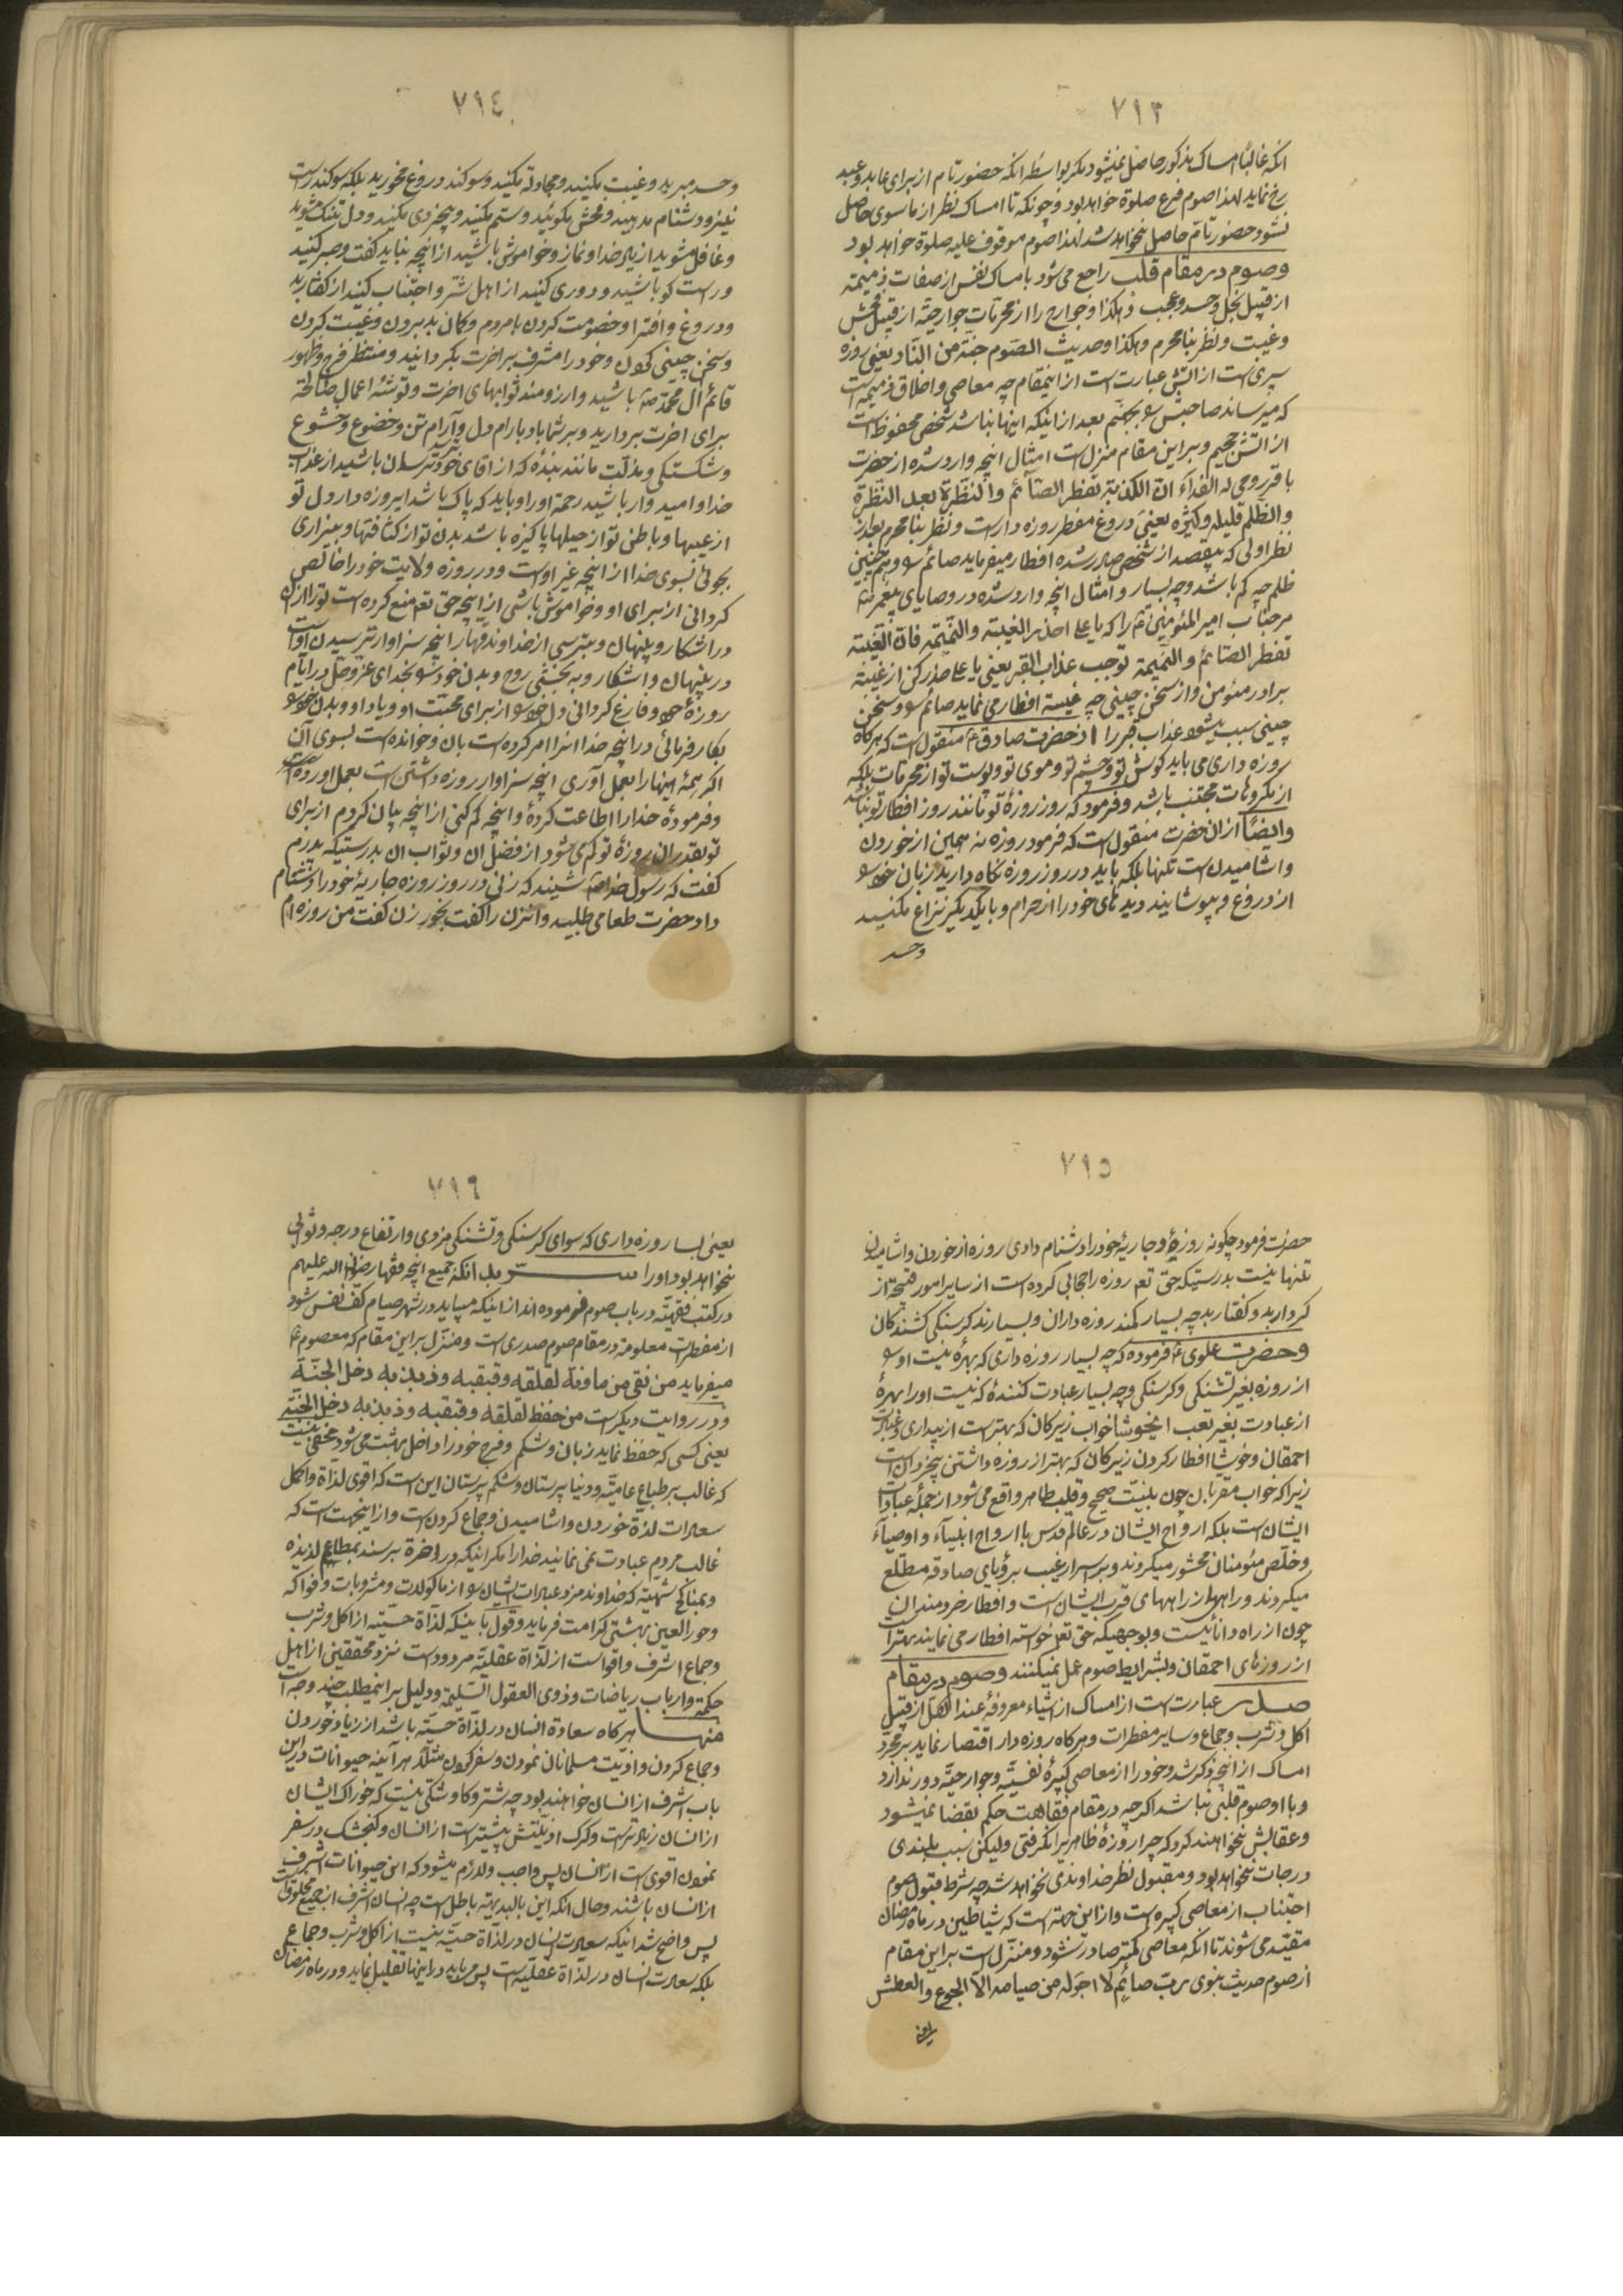 ٧١٣
انکه غالبًا امساک مذکور حاصل نمیشود مکر بواسطه انکه حضور تام از برای عابد و عبد
رخ نماید لهذا صوم فرع صلوة خواهد بود و چونکه تا امساک نظر از ما سوی حاصل
نشود حضور تام حاصل نخواهد شد لهذا صوم موقوف علیه صلوة خواهد بود
وصوم در مقام قلب راجع می شود بامساک نفس از صفات ذمیمته
از قبیل بخل و حسد و عجب و هکذا و جوارح را از محرمات جوارحیّه از قبیل فحش
وغیبت و نظر بنامحرم و هکذا و حدیث الصّوم جنّة من النّار یعنی روزه
سپری است از اتش عبارتست از اینمقام چه معاصی و اخلاق ذمیمه است
که میرساند صاحبش سو بجهنّم بعد از اینکه اینها نباشد شخص محفوظ است
از اتش جحیم و بر این مقام منزل است امثال انچه وارد شده از حضرت
باقر روحی له الفداء انّ الکذبة تفطر الصّائم والنّظرة بعد النّظرة
والظّلم قلیله و کثیره یعنی دروغ مفطر روزه دار است و نظر بنا محرم بعد از
نظر اولی که بیقصد از شخص صادر شده افطار میفرماید صائم سو و همچنین
ظلم چه کم باشد و چه بسیار و امثال انچه وارد شده در وصایای پیغمبر ص
مر جناب امیر المؤمنین ع را که یا علی احذر الغیبة والنّمیمة فانّ الغیبة
تفطر الصّائم والنّمیمة توجب عذاب القبر یعنی یا علی حذر کن از غیبت
برادر مؤمن و از سخن چینی چه غیبت افطار می نماید صائم سو و سخن
چینی سبب میشود عذاب قبر را از حضرت صادق ع منقول است که هرکاه
روزه داری می باید کوش تو و چشم تو و موی تو و پوست تو از محرمات بلکه
از مکروهات مجتنب باشد و فرمود که روز روزهٔ تو مانند روز افطار تو نباشد
وایضًا از ان حضرت منقول است که فرمود روزه نه همین از خوردن
واشامیدن است تنها بلکه باید در روز روزه نکاه دارید زبان خود سو
از دروغ و بپوشانید دیدهای خود را از حرام و با یکدیکر نزاع مکنید
وحسد
٧١٤
وحسد مبرید و غیبت مکنید و مجادله مکنید و سوکند دروغ مخورید بلکه سوکند راست
نیز و دشنام مدهید و فحش مکوئید و ستم مکنید و بیخردی مکنید و دل تنک مشوید
وغافل مشوید از یاد خدا و نماز و خواموش باشید از انچه نباید کفت و صبر کنید
وراست کو باشید و دوری کنید از اهل شر و اجتناب کنید از کفتار بد
ودروغ و افترا و خصومت کردن با مردم و کمان بد بردن و غیبت کردن
وسخن چینی کردن و خود را مشرف بر اخرت بکردانید و منتظر فرج و ظهور
قائم ال محمد ص باشید و ارزومند ثوابهای اخرت و توشهٔ اعمال صالحه
برای اخرت بردارید و بر شما باد بارام دل و آرام تن و خضوع و خشوع
وشکستکی و مذلّت مانند بنده که از اقای خود ترسان باشید از عذاب
خدا و امیدوار باشید رحمة او را و باید که پاک باشد ایروزه دار دل تو
از عیبها و باطن تو از حیلها پاکیزه باشد بدن تو از کثافتها و بیزاری
بجوئی بسوی خدا از انچه غیر اوست و در روزه ولایت خود را خالص
کردانی از برای او و خواموش باشی از انچه حق تعم منع کرده است تو را از ان
در اشکار و پنهان و بترسی از خداوند قهار انچه سزاوار ترسیدن اوست
در پنهان و اشکار و به بخشی روح و بدن خود سو بخدای عزّ وجلّ در ایام
روزهٔ خود و فارغ کردانی دل خود سو از برای محبّت او و یاد او و بدن خود سو
بکار فرمائی در انچه خدا انرا امر کرده است بان و خوانده است بسوی آن
اکر همهٔ اینها را بعمل آوری انچه سزاوار روزه داشتن است بعمل اوردهٔ
وفرمودهٔ خدا را اطاعت کردهٔ و انچه کم کنی از انچه بیان کردم از برای
تو بقدر ان روزهٔ تو کم می شود از فضل ان و ثواب ان بدرستیکه پدرم
کفت که رسول خدا ص شنیدند که زنی در روز روزه جاریهٔ خود را دشنام
داد حضرت طعامی طلبید و انزن را کفت بخور زن کفت من روزه ام
٧١٥
حضرت فرمود چکونه روزهٔ و جاریهٔ خود را دشنام دادی روزه از خوردن و اشامیدن
تنها نیست بدرستیکه حق تعم روزه را حجابی کرده است از سایر امور قبیحه از
کردار بد و کفتار بد چه بسیار کمند روزه داران و بسیارند کرسنکی کشندکان
وحضرت علوی ع فرموده که چه بسیار روزه داری که بهرهٔ نیست او سو
از روزه بغیر تشنکی و کرسنکی و چه بسیار عبادت کنندهٔ که نیست او را بهرهٔ
از عبادت بغیر تعب ایخوشا خواب زیرکان که بهتر است از بیداری و عبادت
احمقان و خوشا افطار کردن زیرکان که بهتر از روزه داشتن بیخردان است
زیرا که خواب مقربان چون بنیّت صحیح و قلب طاهر واقع می شود از جملهٔ عبادات
ایشان است بلکه ارواح ایشان در عالم قدس با ارواح انبیآء و اوصیآء
وخلّص مؤمنان محشور میکروند و بر اسرار غیب برؤیای صادقه مطلع
میکردند و راهی از راههای قرب ایشان است و افطار خردمندان
چون از راه دانائیست و بوجهیکه حق تعم خواسته افطار می نمایند بهتر است
از روزهای احمقان و بشرایط صوم عمل نمیکنند وصوم در مقام
صدر عبارتست از امساک از اشیاء معروفهٔ عند الکلّ از قبیل
اکل و شرب و جماع و سایر مفطرات و هرکاه روزه دار اقتصار نماید بر مجرّد
امساک از انچه ذکر شد و خود را از معاصی کبیرهٔ نفسیّه و جوارحیّه دور ندارد
وبا او صوم قلبی نباشد اکرچه در مقام فقاهت حکم بقضا نمیشود
وعقابش نخواهند کرد که چرا روزهٔ ظاهر را نکرفتی ولیکن سبب بلندی
درجات نخواهد بود و مقبول نظر خداوندی نخواهد شد چه شرط قبول صوم
اجتناب از معاصی کبیره است و از این جهة است که شیاطین در ماه رمضان
مقیّد می شوند تا انکه معاصی کمتر صادر شود و منزّل است بر این مقام
از صوم حدیث نبوی ربّ صائم لا اجر له من صیامه الّا الجوع والعطش
یعنی
٧١٦
یعنی بسا روزه داری که سوای کرسنکی و تشنکی مزدی و ارتفاع درجه و ثوابی
نخواهد بود او را بدانکه جمیع انچه فقها رضوان الله علیهم
در کتب فقهیّه در باب صوم فرموده اند از اینکه میباید در شهر صیام کفّ نفس شود
از مفطرات معلومه در مقام صوم صدری است و منزّل بر این مقام که معصوم ع
میفرماید من نقی من ماونة لقلقه و قبقبه و ذبذبه دخل الجنّة
ودر روایت دیکر است من حفظ لقلقه و قبقبه و ذبذبه دخل الجنّة
یعنی کسی که حفظ نماید زبان و شکم و فرج خود را داخل بهشت می شود مخفی نیست
که غالب بر طباع عامیّه و دنیا پرستان و شکم پرستان این است که اقوی لذّاة و اکمل
سعادات لذّة خوردن و اشامیدن و جماع کردن است و از اینجهت است که
غالب مردم عبادت نمی نمایند خدا را مکر اینکه در اخرة برسند بمطاعم لذیذه
وبمناکح شهیّه که خداوند مزد عبادات ایشان سو از ماکولات و مشروبات و فواکه
وحور العین بهشتی کرامت فرماید و قول باینکه لذّاة حسیّه از اکل و شرب
وجماع اشرف و اقوا است از لذّاة عقلیّه مردود است نزد محققین از اهل
حکمة و ارباب ریاضات و ذوی العقول السّلیمة و دلیل بر اینمطلب چند وجه است
منها هرکاه سعادة انسان در لذّاة حسیّه باشد از زیاد خوردن
وجماع کردن و اذیّت مسلمانان نمودن و سفر کردن مثلًا هر آینه حیوانات در این
باب اشرف از انسان خواهند بود چه شتر و کاو شکّی نیست که خوراک ایشان
از انسان زیادتر است و کرک اذیّتش بیشتر است از انسان و کنجشک در سفر
نمودن اقوی است از انسان پس واجب و لازم میشود که این حیوانات اشرف
از انسان باشند و حال انکه این بالبدیهة باطل است چه انسان اشرف از جمیع مخلوقات
پس واضح شد اینکه سعادت انسان در لذّاة حسیّه نیست از اکل و شرب و جماع
بلکه سعادت انسان در لذّاة عقلیّه است پس میباید در اینها تقلیل نماید و در ماه رمضان